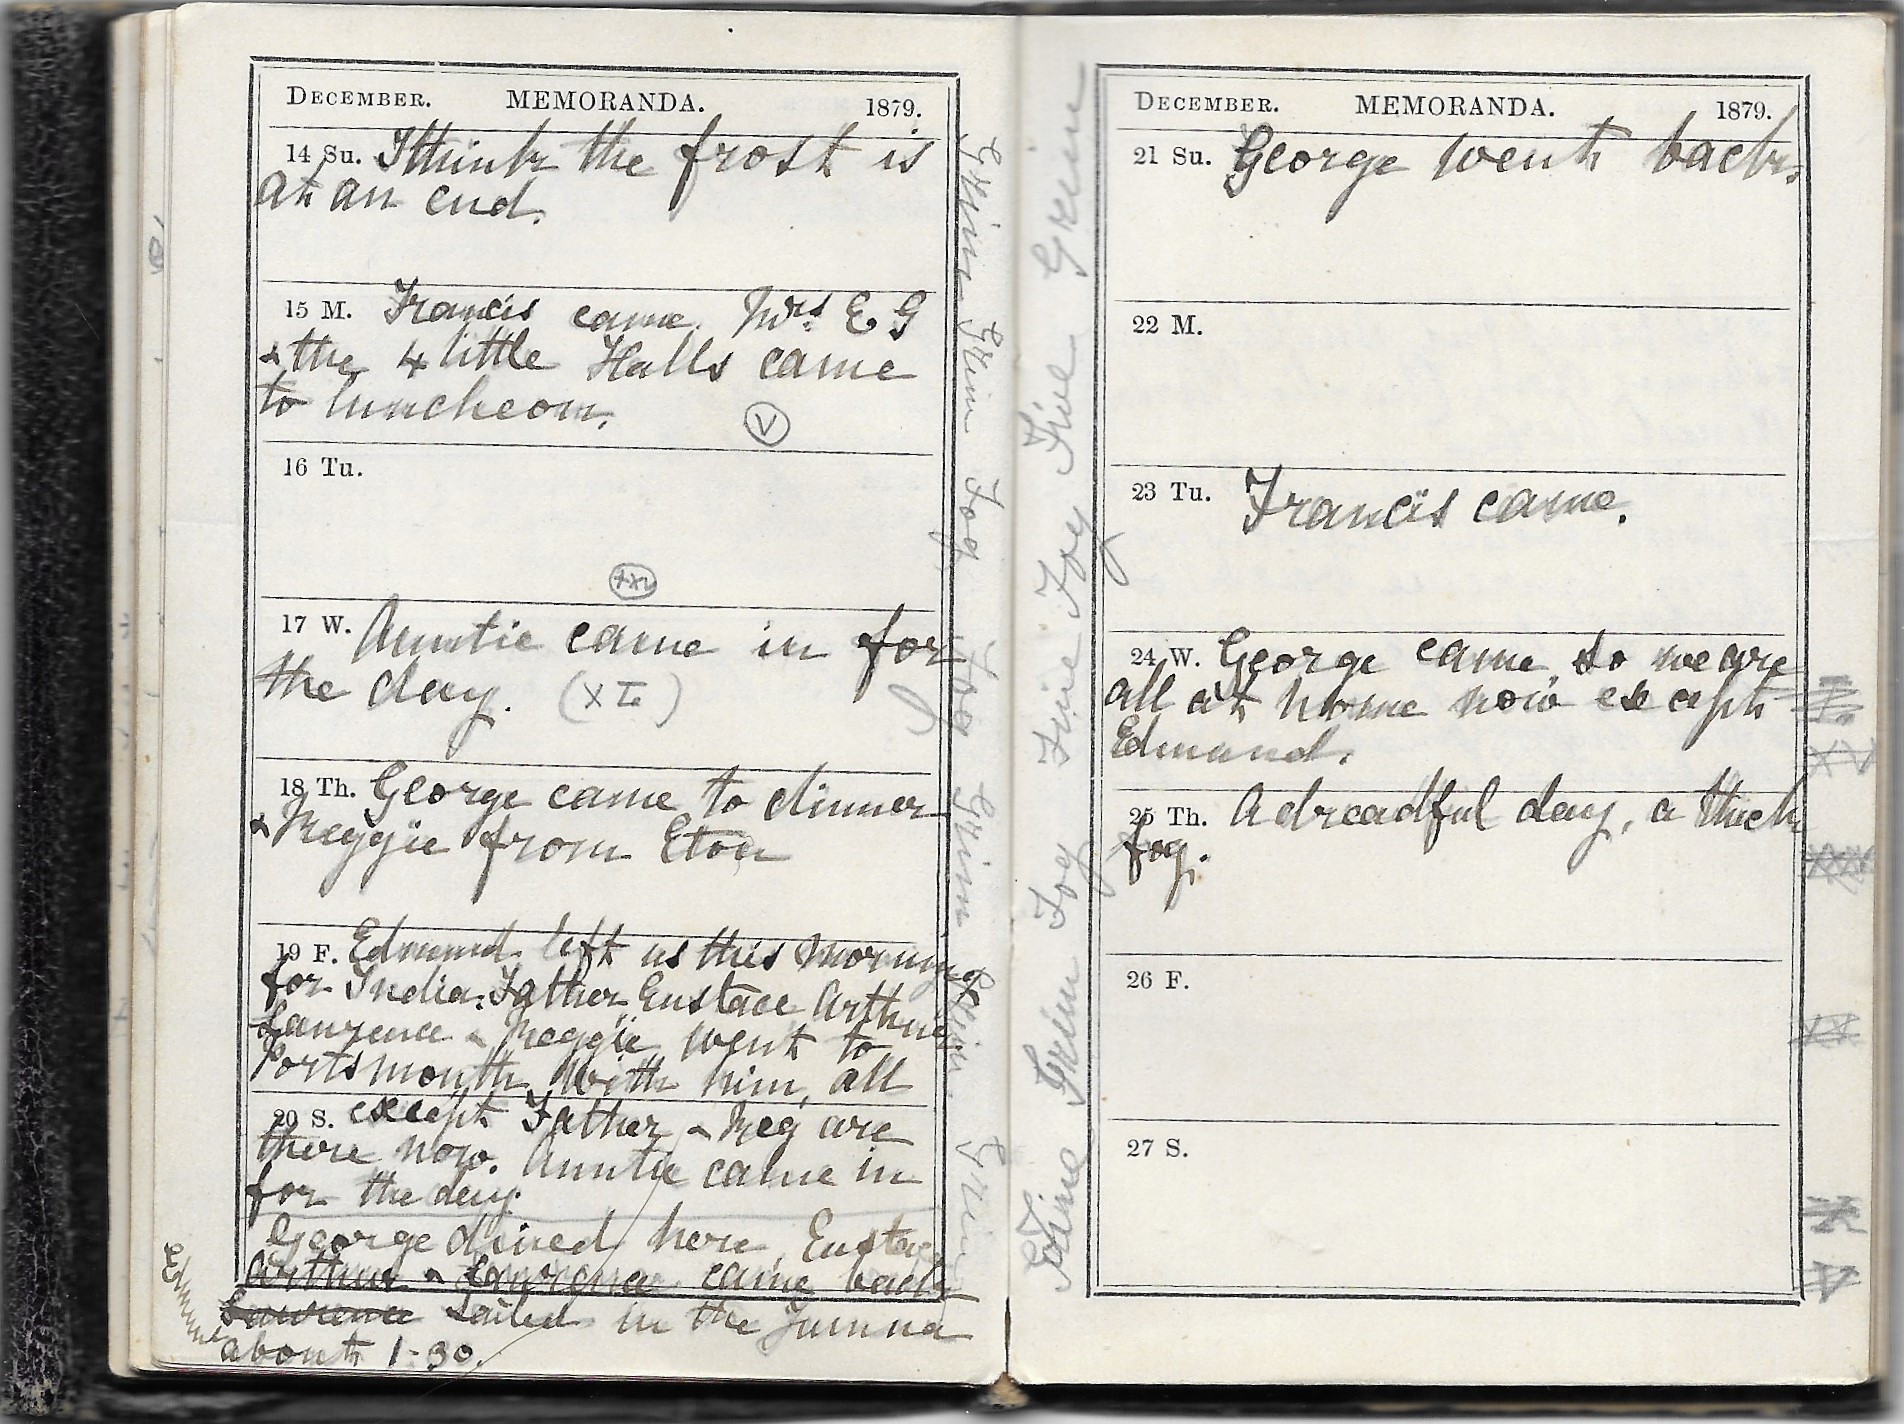 DECEMBER. MEMORANDA. 1879.
14 Su. I think the frost is
at an end.
15 M. Francis came. Mrs E G
& the 4 little Halls came
to luncheon.
V
16 Tu.
17 W. Auntie came in for
the day.
18 Th. George came to dinner
& Reggie from Eton
19 F. Edmund left us this morning
for India. Father, Eustace Arthur
Laurence & Reggie went to
Portsmouth with him, all
20 S. except Father & Reg are
there now. Auntie came in
for the day.
George dined here, Eustace
Arthur & Lawrence came back
Edmund
Lawrence sailed in the Jumna
about 1-30.
Grim Grim Fog Fog Grim Grim Grim
Fine Grim Fog Fine Fog Fine Grim
DECEMBER. MEMORANDA. 1879.
21 Su. George went back.
22 M.
23 Tu. Francis came.
24 W. George came so we are
all at home now except
Edmund.
25 Th. A dreadful day, a thick
fog.
26 F.
27 S.
XV
XX
V